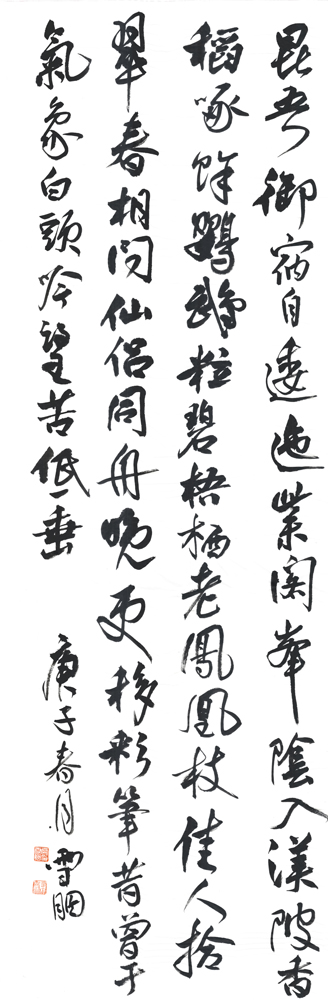 昆吾御宿自逶迤紫閣峯陰入渼陂香
稻啄餘鸚鵡粒碧梧栖老鳳凰枝佳人拾
翠春相問仙侶同舟晚更移彩筆昔曾干
氣象白頭吟望苦低垂
庚子春月雪胭